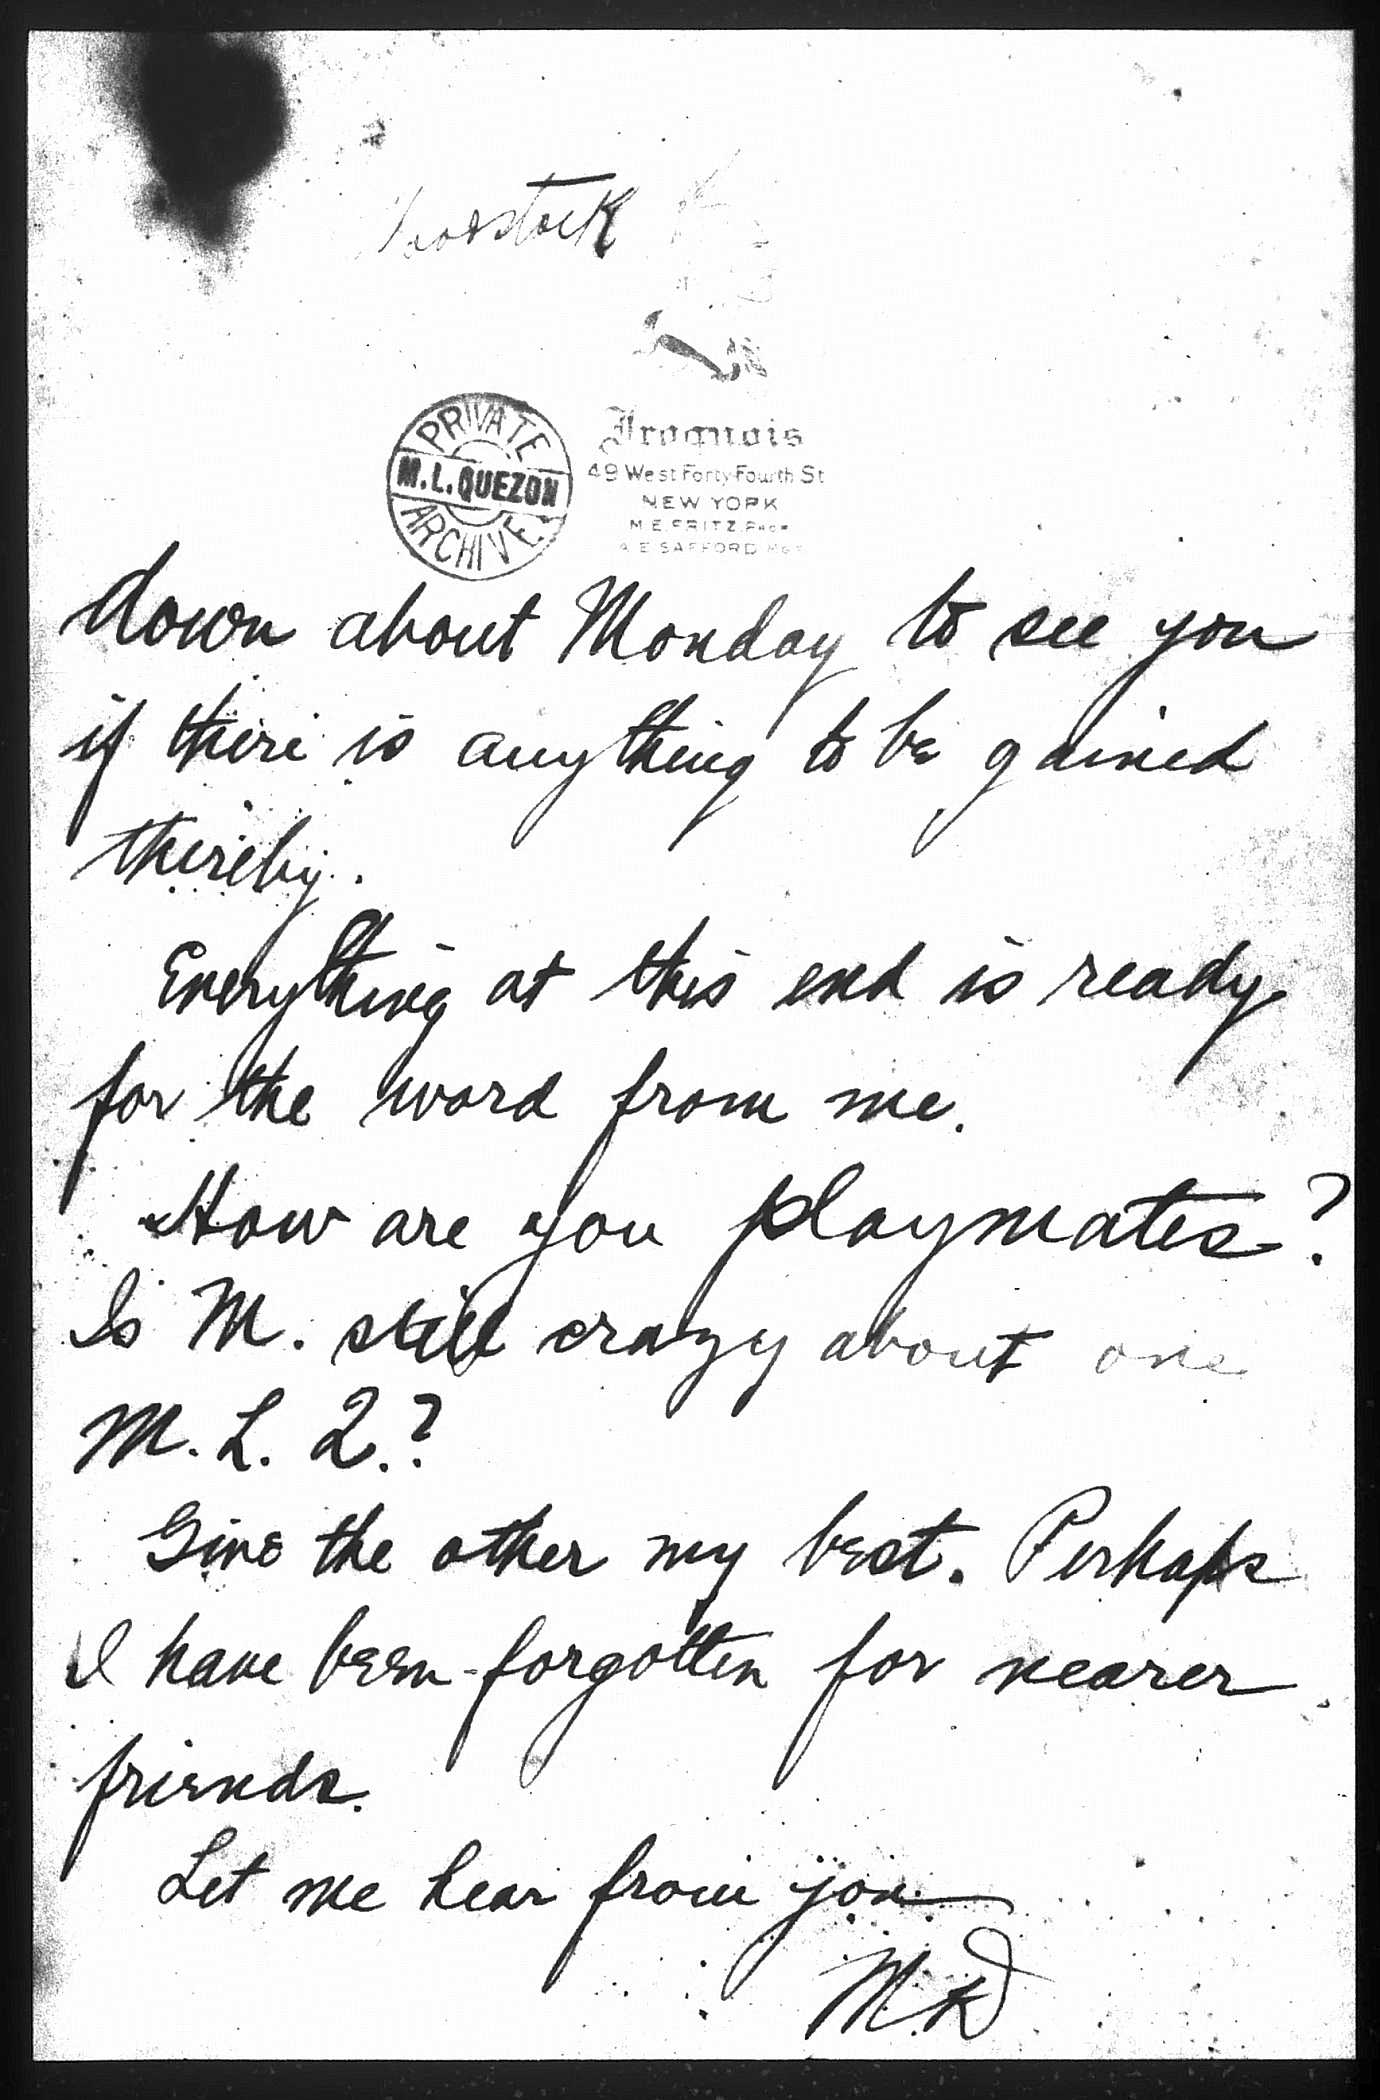 PRIVATE
M.L. QUEZON
ARCHIVE
Iroquois
49 West Forty-Fourth St
NEW YORK
M. E. FRITZ, PROP
E SAFFORD MGR
down about Monday to see you
if there is anything to be gained
thereby.
Everything at this end is ready
for the word from me.
How are you playmates?
Is M. still crazy about one
M. L. Q.?
Give the other my best. Perhaps
I have been forgotten for nearer
friends.
Let me hear from you